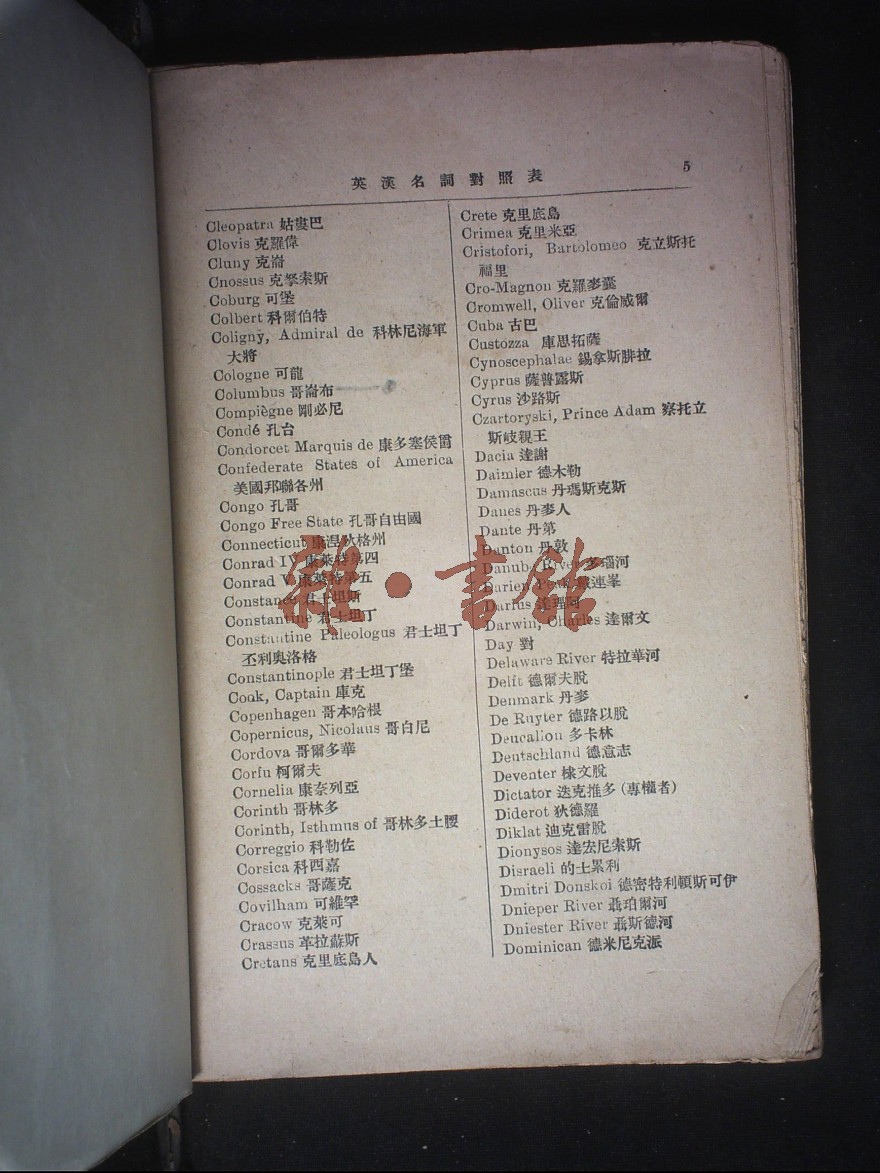 英漢名詞對照表
5
Cleopatra 姑婁巴
Clovis 克羅偉
Cluny 克崙
Cnossus 克拏索斯
Coburg 可堡
Colbert 科爾伯特
Coligny, Admiral de 科林尼海軍
大將
Cologne 可龍
Columbus 哥崙布
Compiègne 剛必尼
Condé 孔台
Condorcet Marquis de 康多塞侯爵
Confederate States of America
美國邦聯各州
Congo 孔哥
Congo Free State 孔哥自由國
Connecticut 康涅狄格州
Conrad IV 康萊特第四
Conrad V 康萊特第五
Constance 君士坦斯
Constantine 君士坦丁
Constantine Paleologus 君士坦丁
丕利奧洛格
Constantinople 君士坦丁堡
Cook, Captain 庫克
Copenhagen 哥本哈根
Copernicus, Nicolaus 哥白尼
Cordova 哥爾多華
Corfu 柯爾夫
Cornelia 康奈列亞
Corinth 哥林多
Corinth, Isthmus of 哥林多土腰
Correggio 科勒佐
Corsica 科西嘉
Cossacks 哥薩克
Covilham 可維罕
Cracow 克萊可
Crassus 革拉蘇斯
Cretans 克里底島人
Crete 克里底島
Crimea 克里米亞
Cristofori, Bartolomeo 克立斯托
福里
Cro-Magnon 克羅麥囊
Cromwell, Oliver 克倫威爾
Cuba 古巴
Custozza 庫思拓薩
Cynoscephalae 錫拿斯腓拉
Cyprus 薩普露斯
Cyrus 沙路斯
Czartoryski, Prince Adam 察托立
斯歧親王
Dacia 達謝
Daimler 德木勒
Damascus 丹瑪斯克斯
Danes 丹麥人
Dante 丹第
Danton 丹敦
Danube River 多瑙河
Darien Peak 連峯
Darius 達理阿
Darwin, Charles 達爾文
Day 對
Delaware River 特拉華河
Delft 德爾夫脫
Denmark 丹麥
De Ruyter 德路以脫
Deucalion 多卡林
Deutschland 德意志
Deventer 棣文脫
Dictator 迭克推多 (專權者)
Diderot 狄德羅
Diklat 迪克雷脫
Dionysos 達宏尼索斯
Disraeli 的士累利
Dmitri Donskoi 德密特利頓斯可伊
Dnieper River 聶珀爾河
Dniester River 聶斯德河
Dominican 德米尼克派
雜·書館